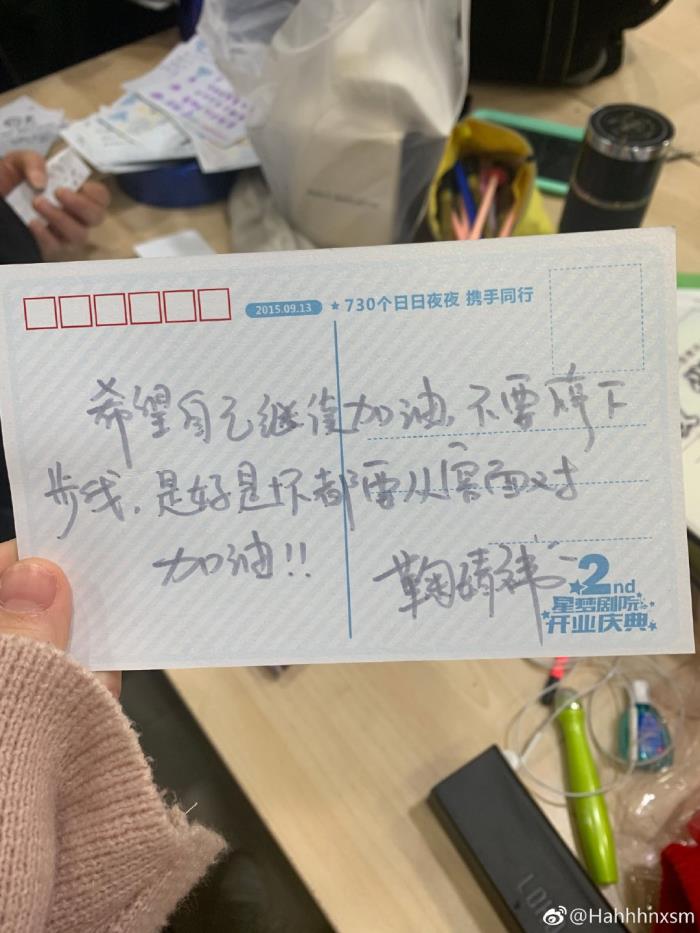 2015.09.13
730个日日夜夜 携手同行
希望自己继续加油,不要停下
步伐,是好是坏都要从容面对
加油!!
鞠婧祎
2nd
星梦剧院
开业庆典
@Hahhhnxsm